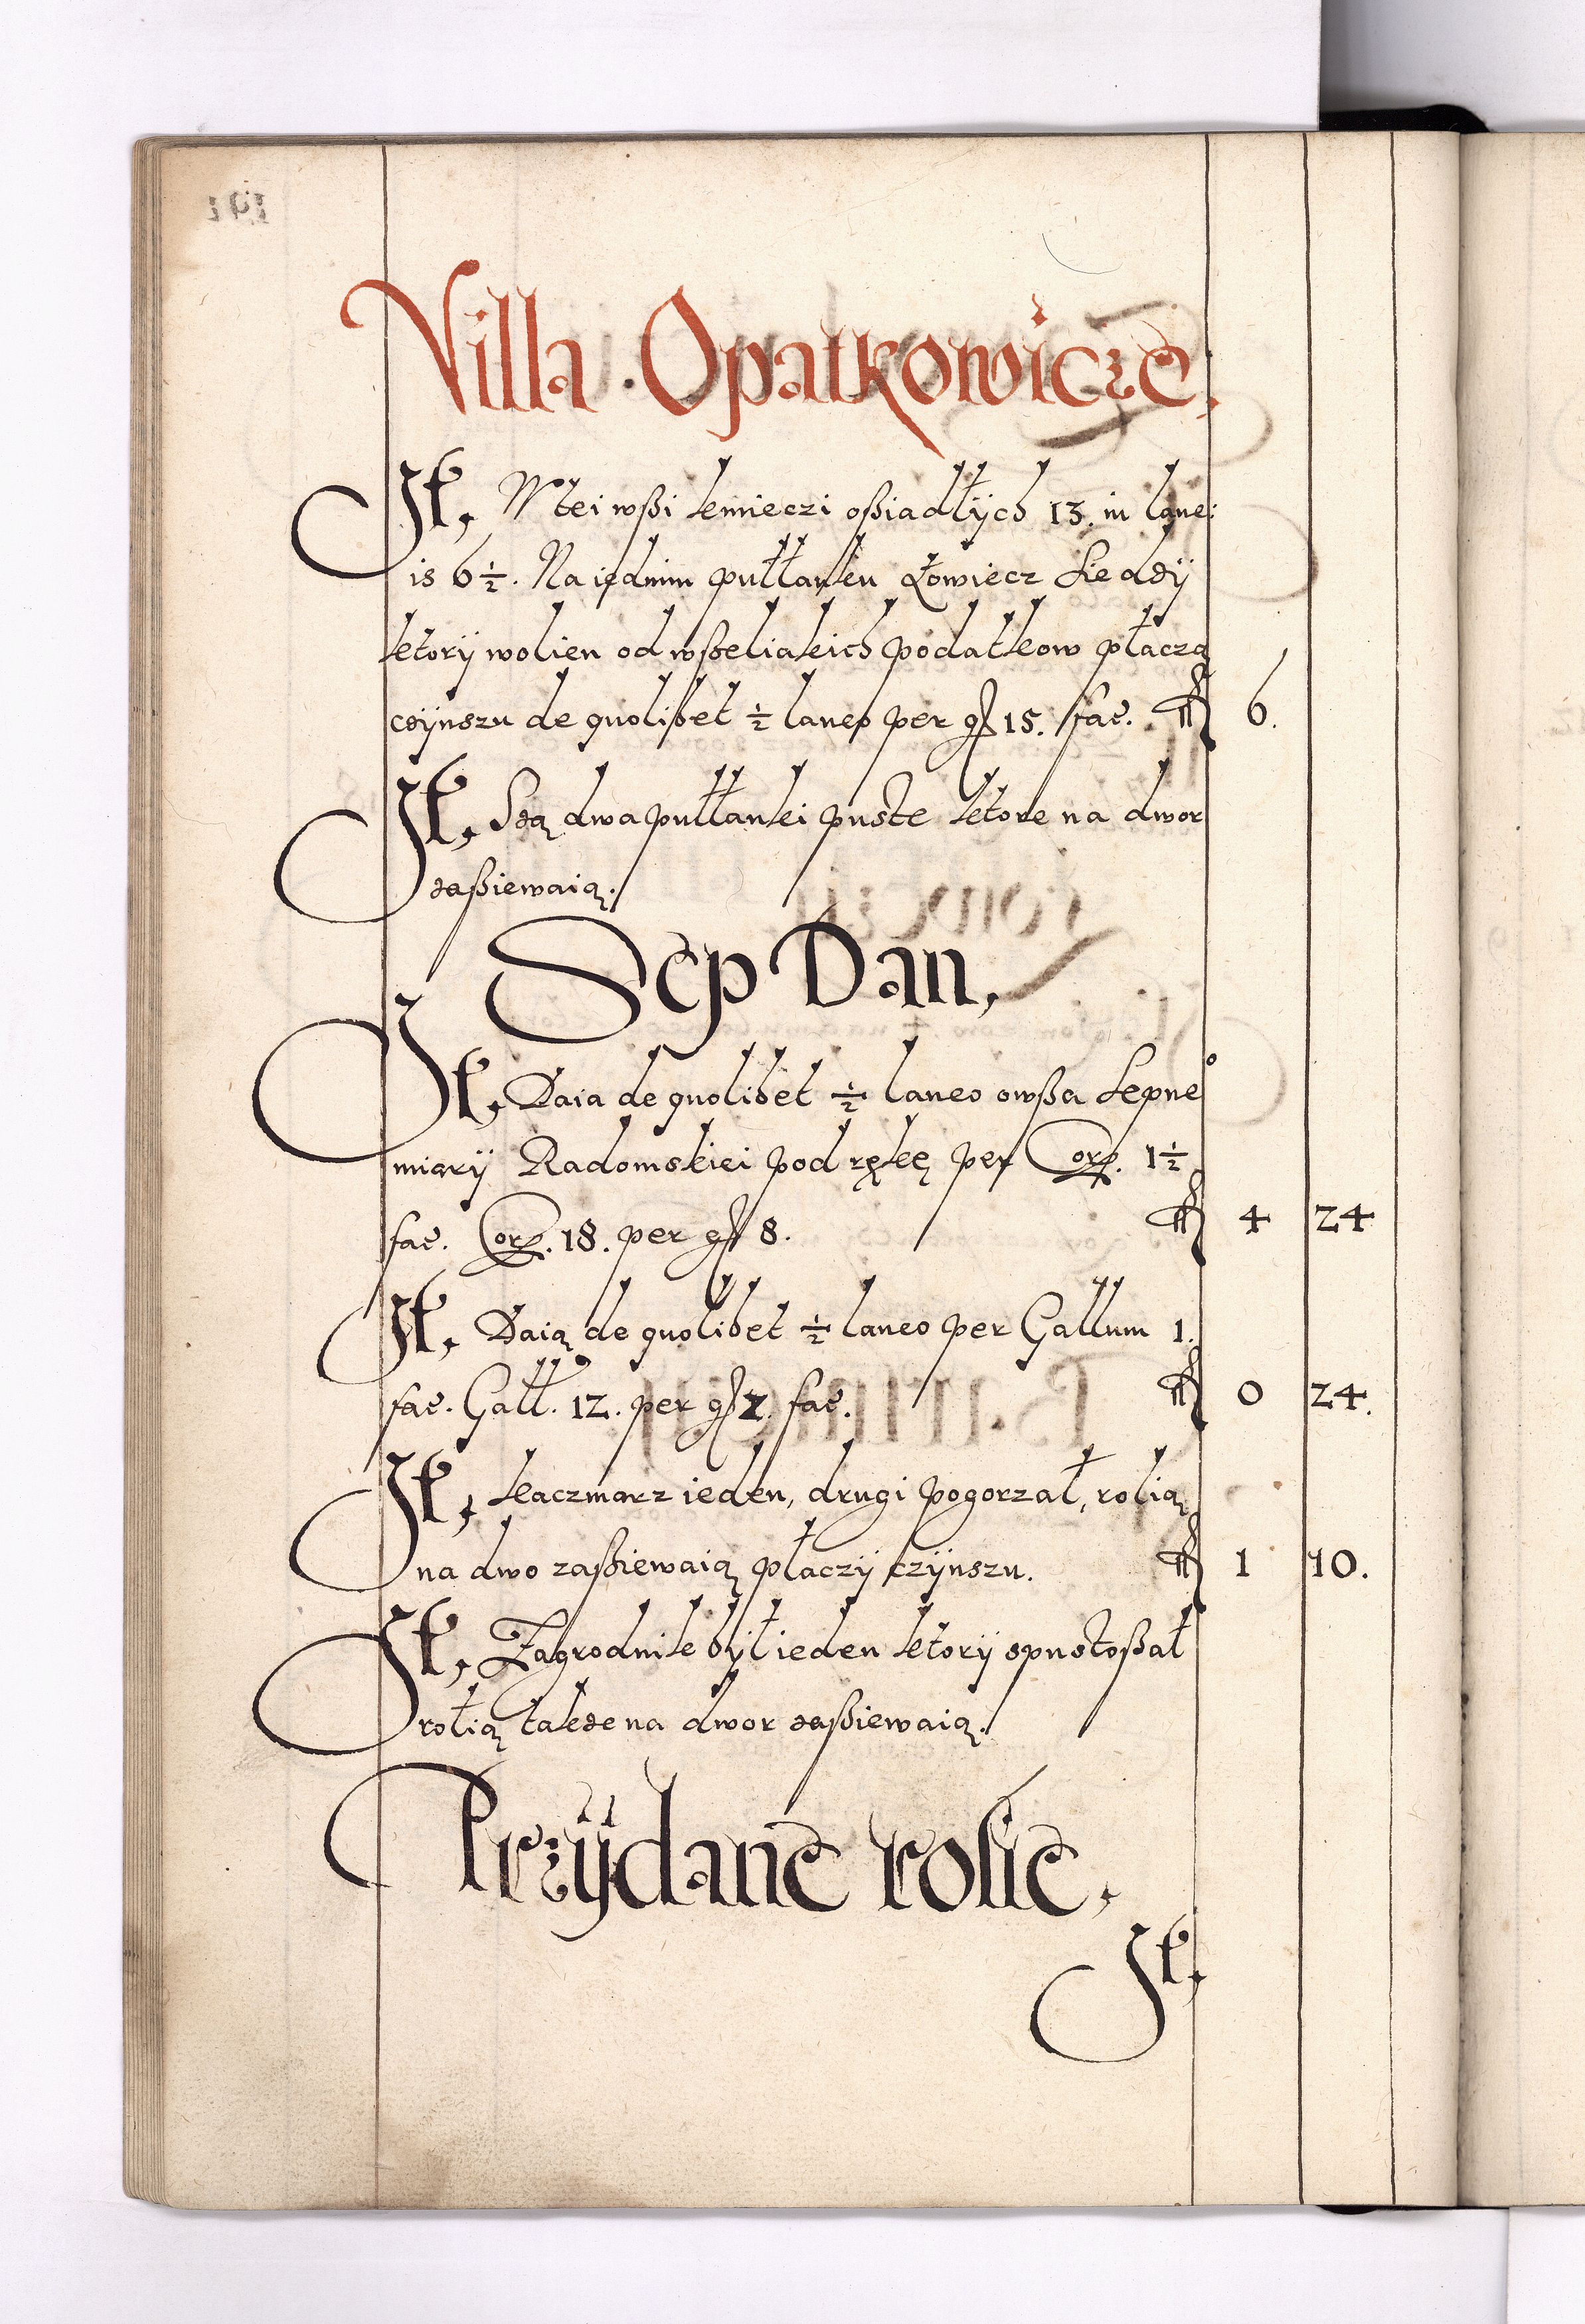 Villa . Opatkowicze.
It, W tei wßi kmieczi oßiadłÿch 13. in lane:
is 6 ½. Na iednim pułłanku Łowiecz siedzÿ
ktorÿ wolien od wßeliakich podatkow płaczą
czÿnszu de quolibet ½ laneo per gr 15. fac. fl 6.
It, Są dwa pułłanki puste ktore na dwor
zaßiewaią.
Sep Dan,
It, Daia de quolibet ½ laneo owßa sepneº
miarÿ Radomskiei pod rękę per Cor. 1½
fac. Cor. 18. per gr 8. fl 4 24
It, Daią de quolibet ½ laneo per Gallum 1.
fac. Gall. 12. per gr 2. fac. fl 0 24.
It, kaczmarz ieden, drugi pogorzał, rolią
na dwo zaßiewaią płaczÿ czÿnszu. fl 1 10.
It, Zagrodnik bÿł ieden ktorÿ spustoßał
rolią takze na dwor zaßiewaią.
Przÿdane rolie,
It,